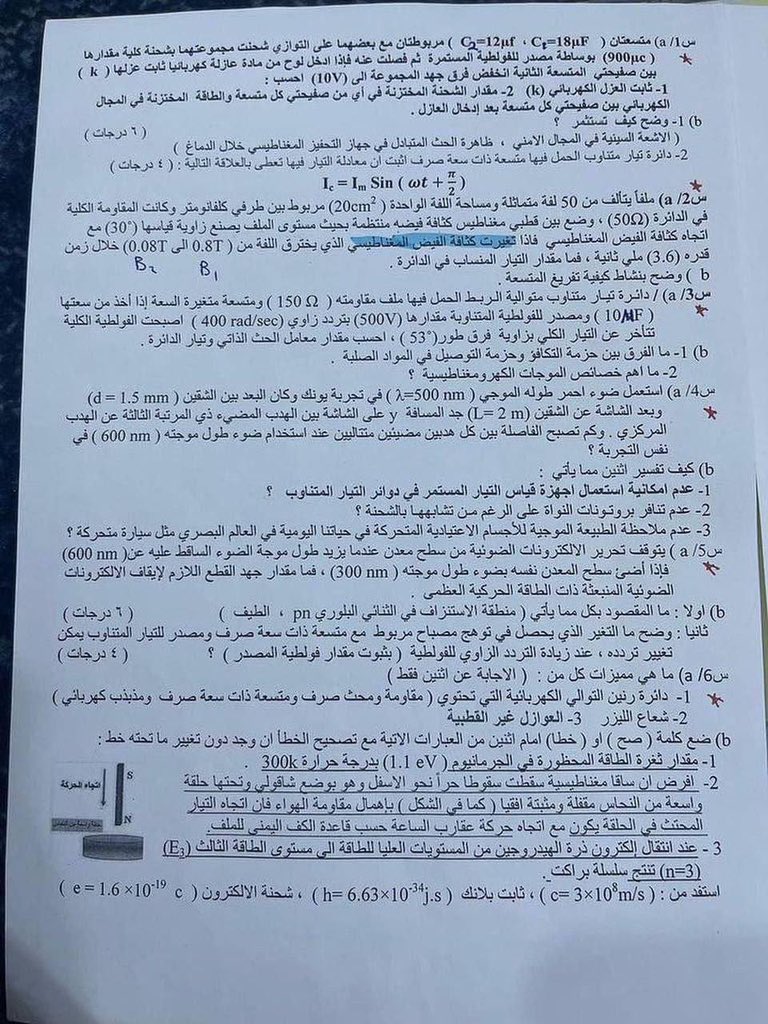 س1/ a) متسعتان ( C₁=18μF ، C₂=12μf ) مربوطتان مع بعضهما على التوازي شحنت مجموعتهما بشحنة كلية مقدارها
(900μc) بوساطة مصدر للفولطية المستمرة ثم فصلت عنه فإذا ادخل لوح من مادة عازلة كهربائيا ثابت عزلها ( k )
بين صفيحتي المتسعة الثانية انخفض فرق جهد المجموعة الى (10V) احسب :
1- ثابت العزل الكهربائي (k) 2- مقدار الشحنة المختزنة في أي من صفيحتي كل متسعة والطاقة المختزنة في المجال
الكهربائي بين صفيحتي كل متسعة بعد إدخال العازل .
b) 1- وضح كيف تستثمر ؟ ( ٦ درجات )
( الاشعة السينية في المجال الامني ، ظاهرة الحث المتبادل في جهاز التحفيز المغناطيسي خلال الدماغ )
2- دائرة تيار متناوب الحمل فيها متسعة ذات سعة صرف اثبت ان معادلة التيار فيها تعطى بالعلاقة التالية : ( ٤ درجات )
Ic = Im Sin ( ωt + π/2 )
س2/ a) ملفاً يتألف من 50 لفة متماثلة ومساحة اللفة الواحدة (20cm²) مربوط بين طرفي كلفانومتر وكانت المقاومة الكلية
في الدائرة (50Ω) ، وضع بين قطبي مغناطيس كثافة فيضه منتظمة بحيث مستوى الملف يصنع زاوية قياسها (30°) مع
اتجاه كثافة الفيض المغناطيسي فاذا تغيرت كثافة الفيض المغناطيسي الذي يخترق اللفة من (0.8T الى 0.08T) خلال زمن
قدره (3.6) ملي ثانية ، فما مقدار التيار المنساب في الدائرة .
B₁ B₂
b ) وضح بنشاط كيفية تفريغ المتسعة .
س3/ a) / دائرة تيار متناوب متوالية الربط الحمل فيها ملف مقاومته ( 150 Ω ) ومتسعة متغيرة السعة إذا أخذ من سعتها
( 10MF ) ومصدر للفولطية المتناوبة مقدارها (500V) بتردد زاوي (400 rad/sec) اصبحت الفولطية الكلية
تتأخر عن التيار الكلي بزاوية فرق طور(53°) ، احسب مقدار معامل الحث الذاتي وتيار الدائرة .
b) 1- ما الفرق بين حزمة التكافؤ وحزمة التوصيل في المواد الصلبة .
2- ما اهم خصائص الموجات الكهرومغناطيسية ؟
س4/ a) استعمل ضوء احمر طوله الموجي ( λ=500 nm ) في تجربة يونك وكان البعد بين الشقين ( d = 1.5 mm )
وبعد الشاشة عن الشقين (L= 2 m) جد المسافة y على الشاشة بين الهدب المضيء ذي المرتبة الثالثة عن الهدب
المركزي . وكم تصبح الفاصلة بين كل هدبين مضيئين متتاليين عند استخدام ضوء طول موجته ( 600 nm ) في
نفس التجربة ؟
b) كيف تفسير اثنين مما يأتي :
1- عدم امكانية استعمال اجهزة قياس التيار المستمر في دوائر التيار المتناوب ؟
2- عدم تنافر بروتونات النواة على الرغم من تشابهها بالشحنة ؟
3- عدم ملاحظة الطبيعة الموجية للأجسام الاعتيادية المتحركة في حياتنا اليومية في العالم البصري مثل سيارة متحركة ؟
س5/ a ) يتوقف تحرير الالكترونات الضوئية من سطح معدن عندما يزيد طول موجة الضوء الساقط عليه عن( 600 nm)
فإذا أضئ سطح المعدن نفسه بضوء طول موجته ( 300 nm) ، فما مقدار جهد القطع اللازم لإيقاف الالكترونات
الضوئية المنبعثة ذات الطاقة الحركية العظمى .
b) اولا : ما المقصود بكل مما يأتي ( منطقة الاستنزاف في الثنائي البلوري pn ، الطيف ) ( ٦ درجات )
ثانيا : وضح ما التغير الذي يحصل في توهج مصباح مربوط مع متسعة ذات سعة صرف ومصدر للتيار المتناوب يمكن
تغيير تردده ، عند زيادة التردد الزاوي للفولطية ( بثبوت مقدار فولطية المصدر ) ؟ ( ٤ درجات )
س6/ a) ما هي مميزات كل من : ( الاجابة عن اثنين فقط )
1- دائرة رنين التوالي الكهربائية التي تحتوي ( مقاومة ومحث صرف ومتسعة ذات سعة صرف ومذبذب كهربائي )
2- شعاع الليزر 3- العوازل غير القطبية
b) ضع كلمة ( صح ) او ( خطا) امام اثنين من العبارات الاتية مع تصحيح الخطأ ان وجد دون تغيير ما تحته خط :
1- مقدار ثغرة الطاقة المحظورة في الجرمانيوم ( 1.1 eV) بدرجة حرارة 300k .
2- افرض ان ساقا مغناطيسية سقطت سقوطا حراً نحو الاسفل وهو بوضع شاقولي وتحتها حلقة
واسعة من النحاس مقفلة ومثبتة افقيا ( كما في الشكل ) بإهمال مقاومة الهواء فان اتجاه التيار
المحتث في الحلقة يكون مع اتجاه حركة عقارب الساعة حسب قاعدة الكف اليمنى للملف.
اتجاه الحركة
S
N
3 - عند انتقال إلكترون ذرة الهيدروجين من المستويات العليا للطاقة الى مستوى الطاقة الثالث (E₃)
(n=3) تنتج سلسلة براكت .
استفد من : ( c= 3×10⁸m/s ) ، ثابت بلانك ( h= 6.63×10⁻³⁴j.s ) ، شحنة الالكترون ( e = 1.6 ×10⁻¹⁹ c )